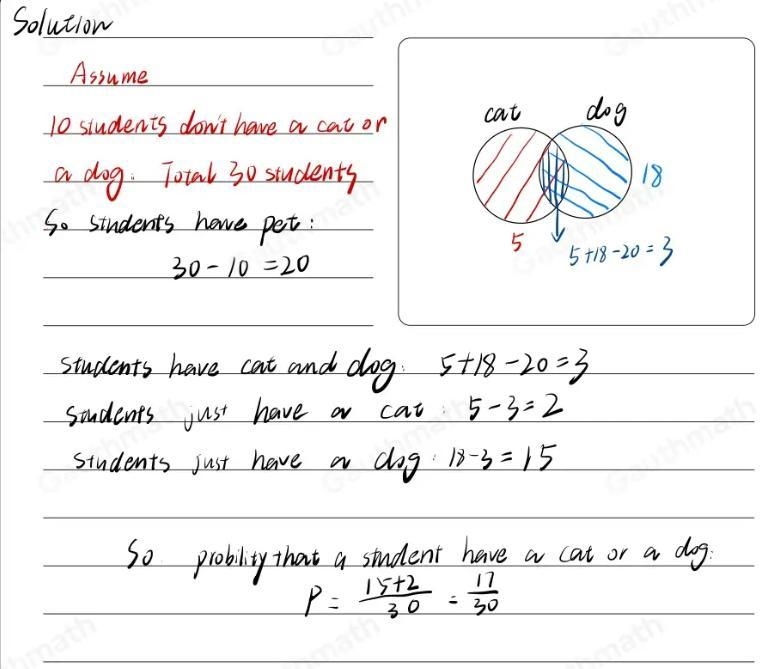 Solution
Assume
10 students don't have a cat or
a dog. Total 30 students
So students have pet:
30-10=20
cat dog
18
5
5+18-20=3
students have cat and dog: 5+18-20=3
Students just have a cat: 5-3=2
Students just have a dog: 18-3=15
So probility that a student have a cat or a dog:
P = 15+2/30 = 17/30